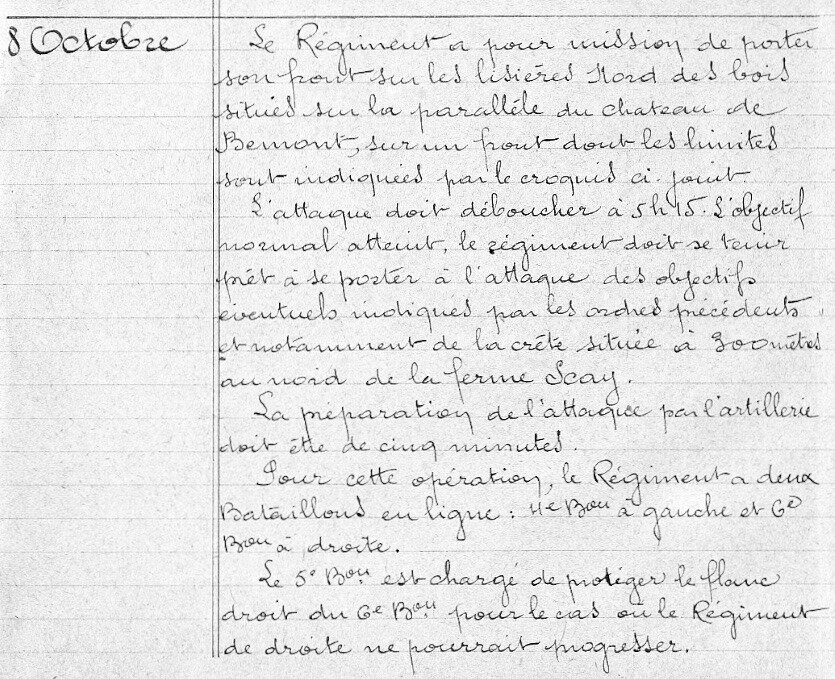 8 Octobre
Le Régiment a pour mission de porter
son front sur les lisières Nord des bois
situés sur la parallèle du chateau de
Bemont, sur un front dont les limites
sont indiquées par le croquis ci-joint
L'attaque doit déboucher à 5h15. L'objectif
normal atteint, le régiment doit se tenir
prêt à se porter à l'attaque des objectifs
éventuels indiqués par les ordres précédents
et notamment de la crête située à 300 mètres
au nord de la ferme Scay.
La préparation de l'attaque par l'artillerie
doit être de cinq minutes.
Pour cette opération, le Régiment a deux
Bataillons en ligne : 4e Bon à gauche et 6e
Bon à droite.
Le 5e Bon est chargé de protéger le flanc
droit du 6e Bon pour le cas où le Régiment
de droite ne pourrait progresser.